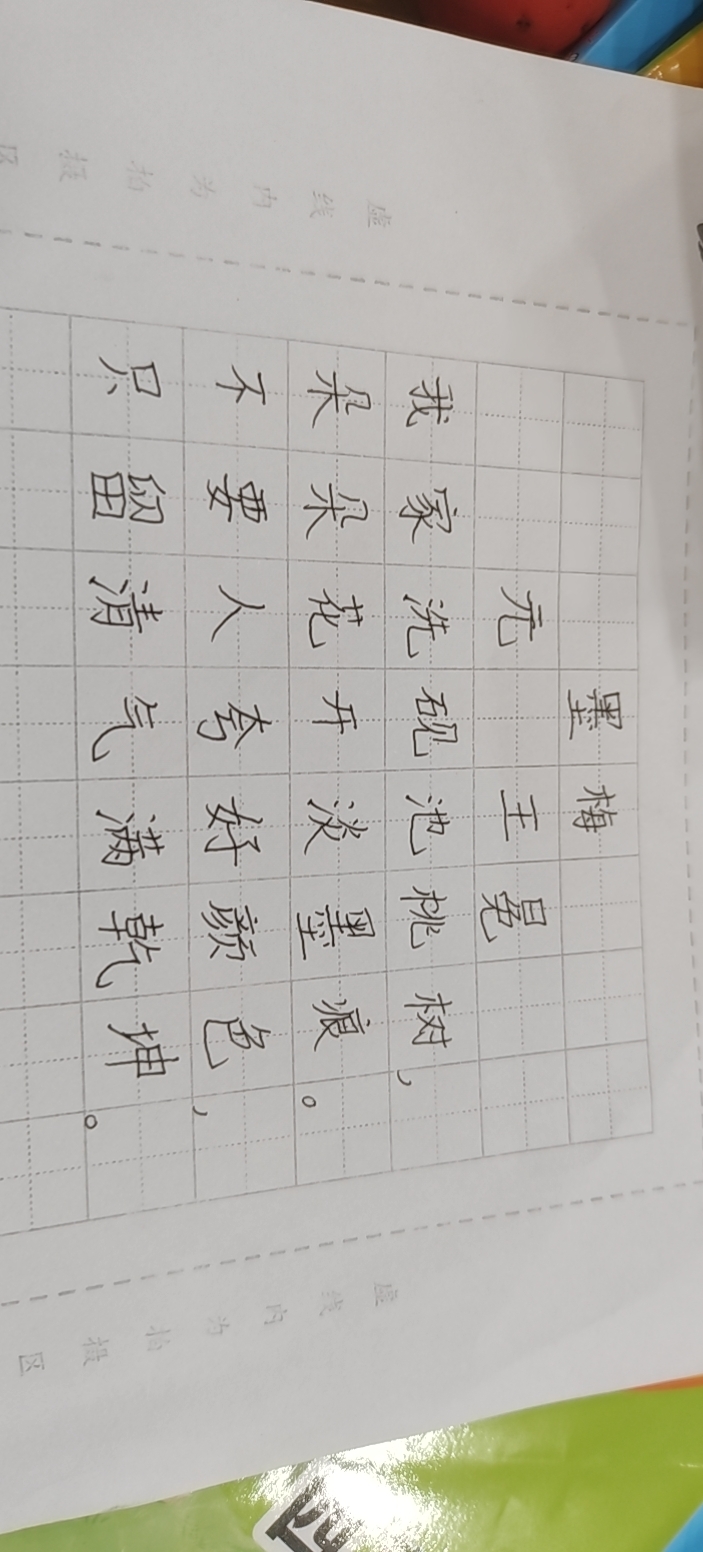 墨梅
元 王冕
我家洗砚池桃树，
朵朵花开淡墨痕。
不要人夸好颜色，
只留清气满乾坤。
虚线内为拍摄区
虚线内为拍摄区